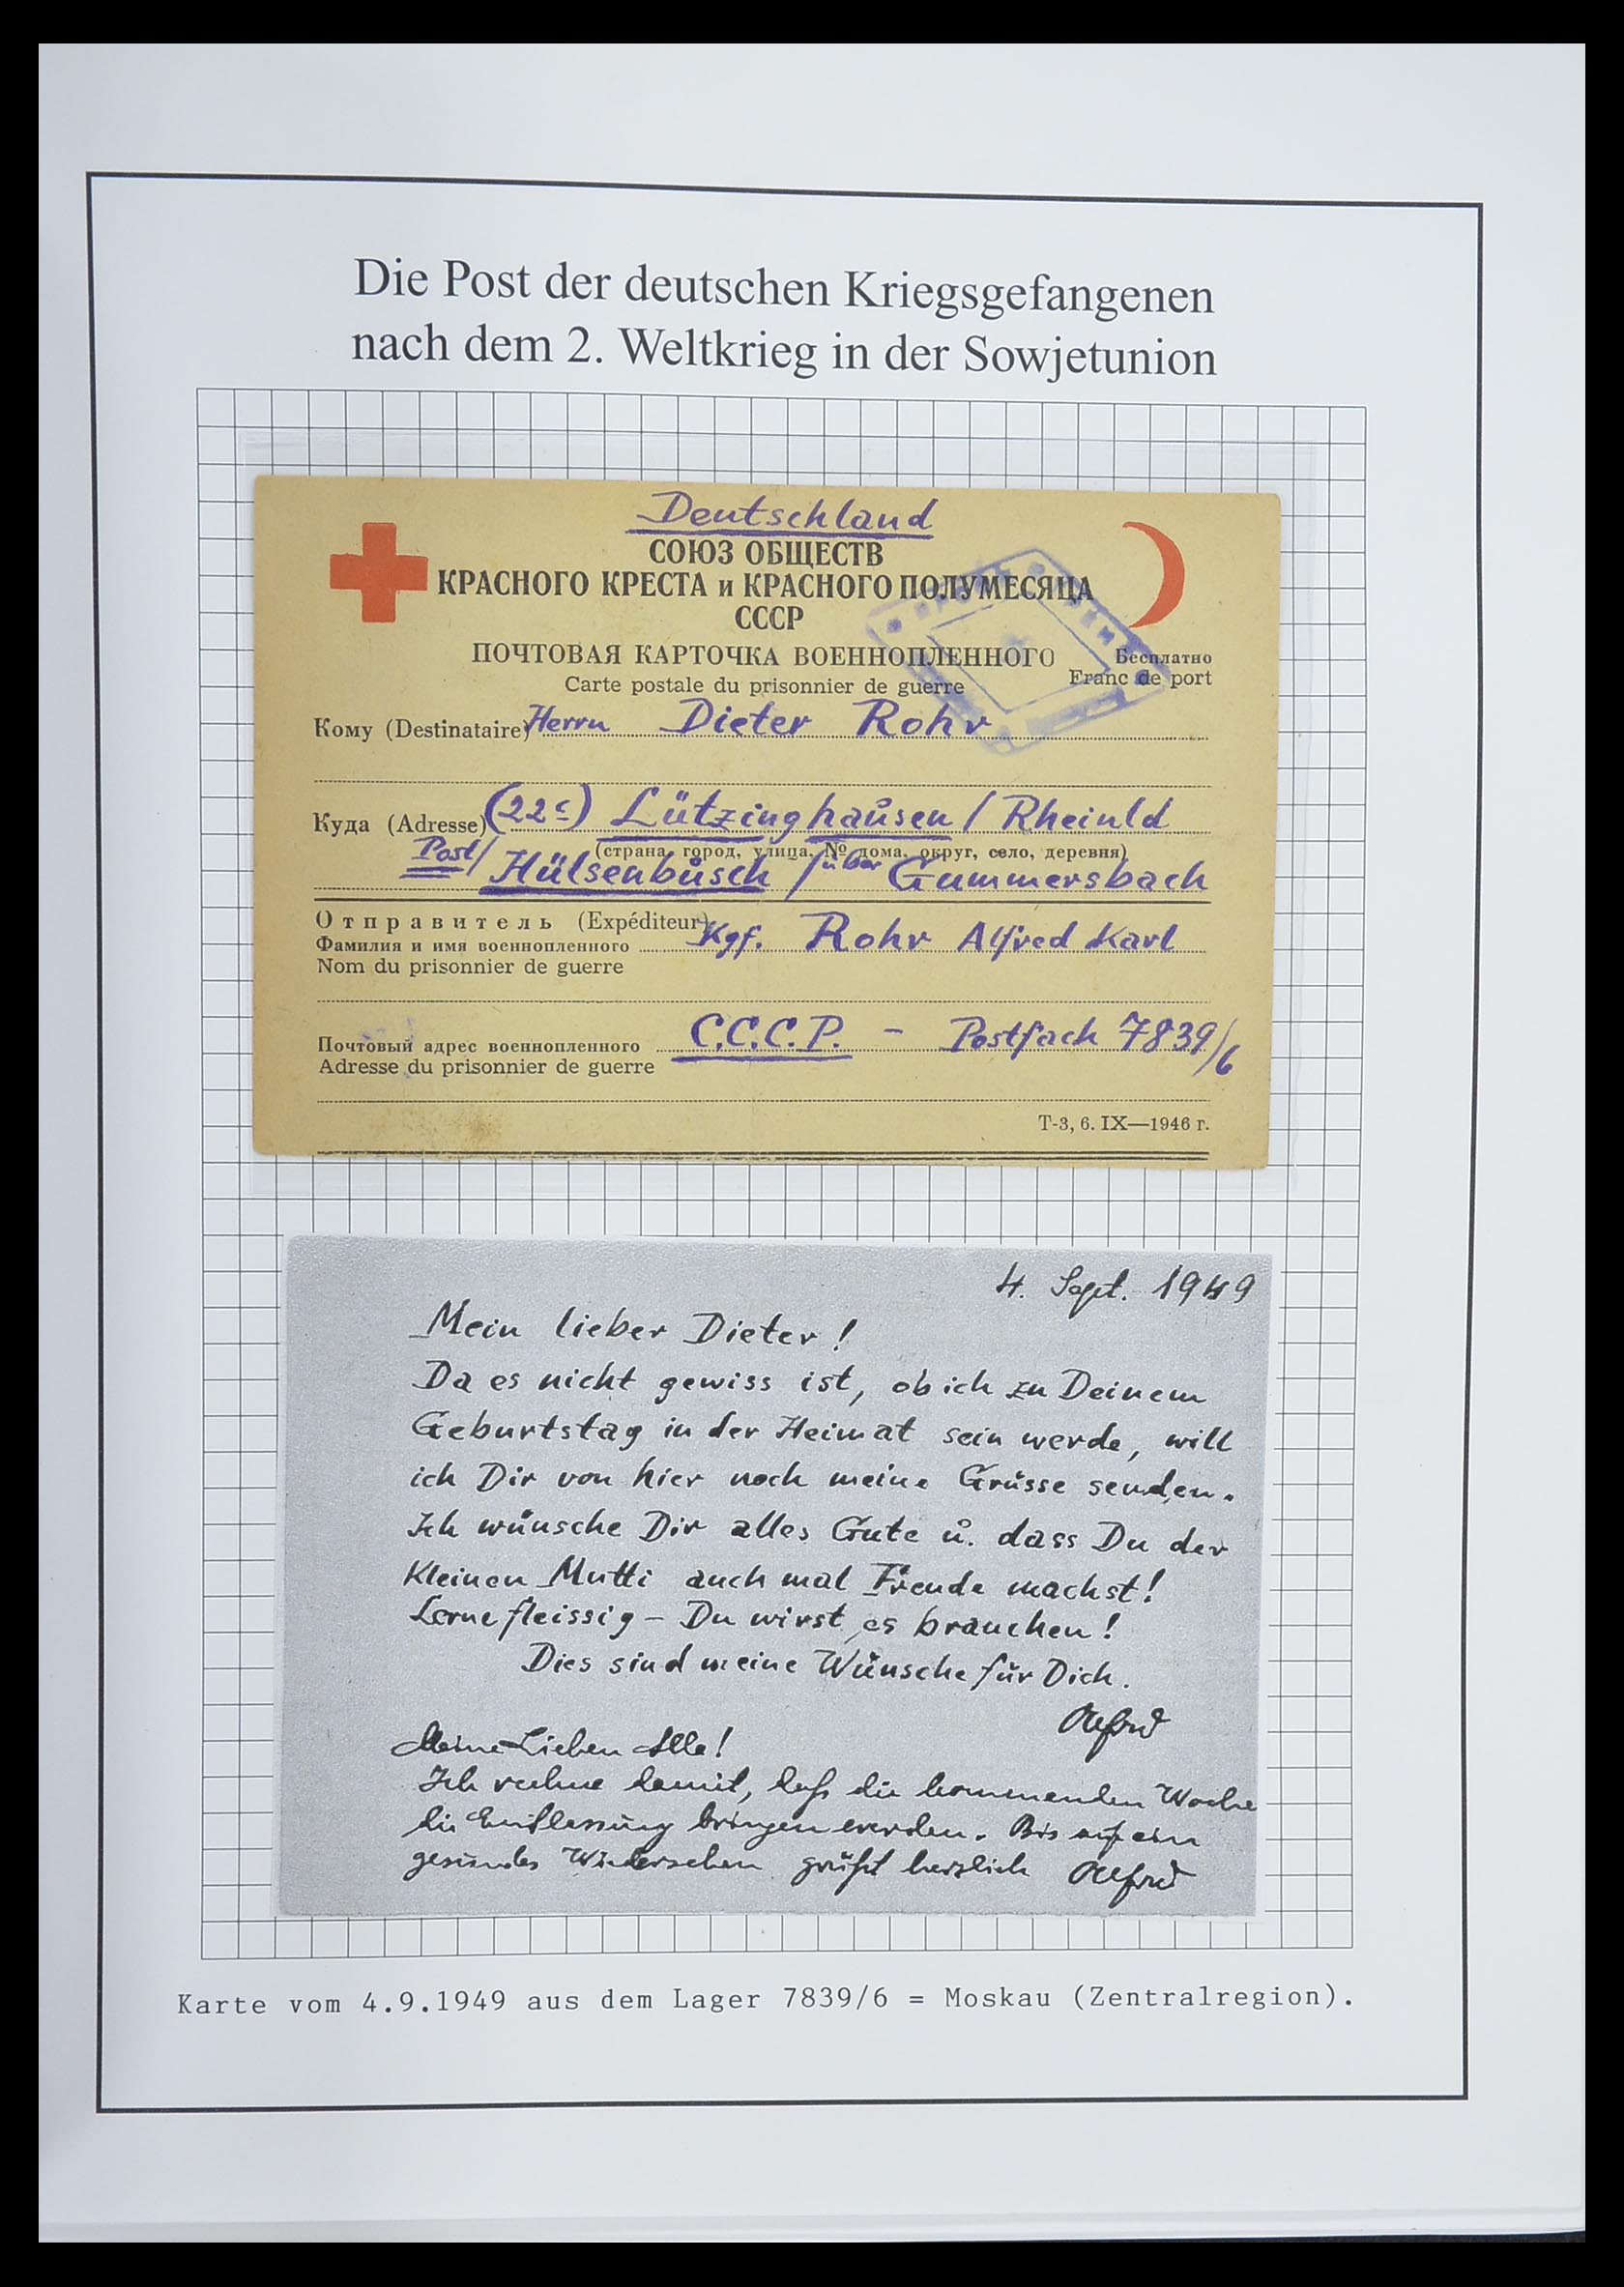 Die Post der deutschen Kriegsgefangenen
nach dem 2. Weltkrieg in der Sowjetunion
Deutschland
СОЮЗ ОБЩЕСТВ
КРАСНОГО КРЕСТА и КРАСНОГО ПОЛУМЕСЯЦА
СССР
ПОЧТОВАЯ КАРТОЧКА ВОЕННОПЛЕННОГО
Бесплатно
Carte postale du prisonnier de guerre
Franc de port
Кому (Destinataire) Herrn Dieter Rohr
Куда (Adresse) (22c) Lützinghausen / Rheinld
(страна, город, улица, № дома, округ, село, деревня)
Post/ Hülsenbusch / über Gummersbach
Отправитель (Expéditeur)
Фамилия и имя военнопленного Kgf. Rohr Alfred Karl
Nom du prisonnier de guerre
Почтовый адрес военнопленного C.C.C.P. - Postfach 7839/6
Adresse du prisonnier de guerre
Т-3, 6. IX—1946 г.
4. Sept. 1949
Mein lieber Dieter!
Da es nicht gewiss ist, ob ich zu Deinem
Geburtstag in der Heimat sein werde, will
ich Dir von hier noch meine Grüsse senden.
Ich wünsche Dir alles Gute u. dass Du der
Kleinen Mutti auch mal Freude machst!
Lerne fleissig – Du wirst es brauchen!
Dies sind meine Wünsche für Dich.
Alfred
Meine Lieben Alle!
Ich rechne damit, daß die kommenden Woche
die Entlassung bringen werden. Bis auf ein
gesundes Wiedersehen grüßt herzlich Alfred
Karte vom 4.9.1949 aus dem Lager 7839/6 = Moskau (Zentralregion).